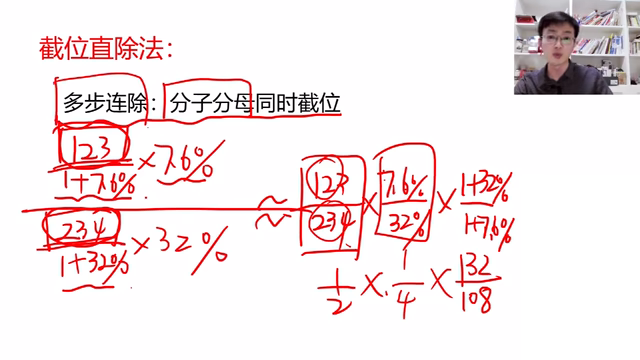 截位直除法：
多步连除：分子分母同时截位
123/(1+7.6%) × 7.6%
234/(1+32%) × 32%
≈ 123/234 × 7.6%/32% × (1+32%)/(1+7.6%)
1/2 × 1/4 × 132/108